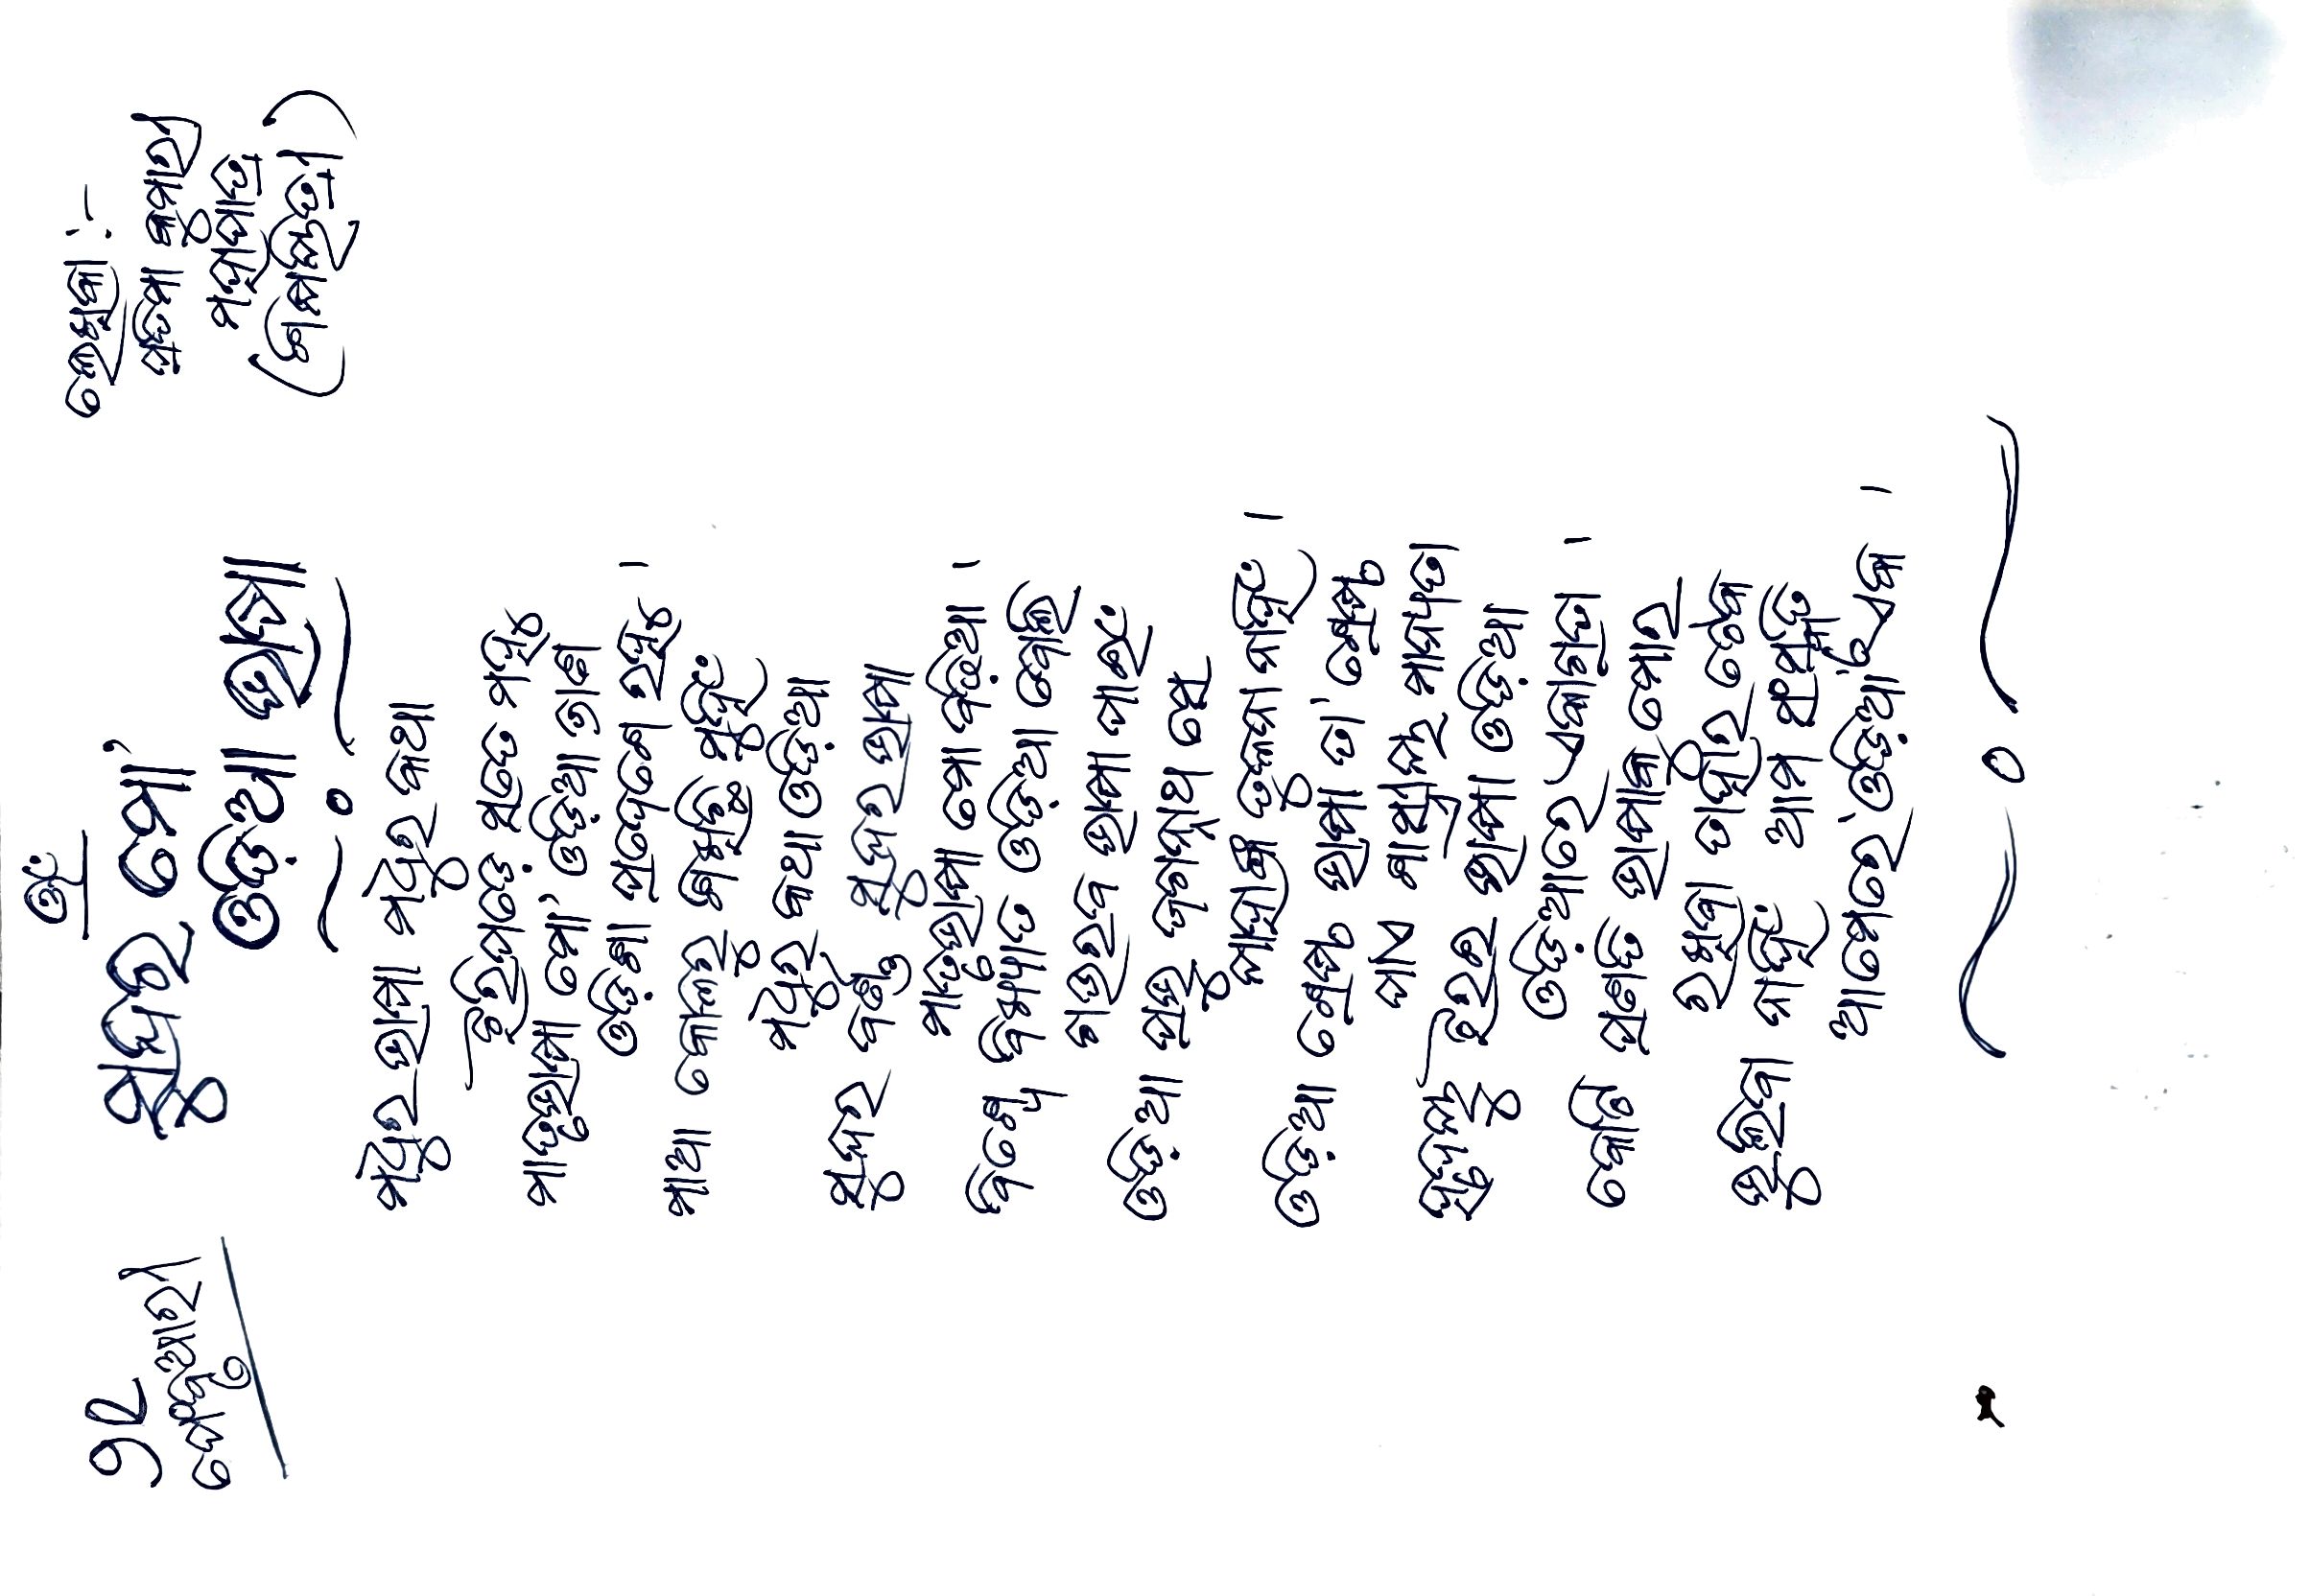 ଓଁ
୨୧
ଫେବୃଆରୀ
ସୁନ୍ଦର ମୋ'
ଓଡ଼ିଆ ଭାଷା
ଲେଖିକା :-
ପ୍ରତିମା କୁମାରୀ
ମହାପାତ୍ର
(ଶିକ୍ଷୟିତ୍ରୀ)
ମଧୁର ଭାଷା ମଧୁର କଥା
ଝରିପଡ଼େ ସତେ ମହୁ
ମାତୃଭାଷା ମୋ' ଓଡ଼ିଆ ଭାଣ
ଓଡ଼ିଶା ପ୍ରଦେଶେ ରହୁ ।
ମାଆ କୋଳରୁ ଶିଖିଛି ମୁହିଁ
ମଧୁର କଥା ଓଡ଼ିଆ
ସୁନ୍ଦର ବର୍ଣ୍ଣ ସୁନ୍ଦର ଭାଷା
ମାତୃଭାଷା ମୋ ବଢ଼ିଆ ।
ବିଶ୍ୱେ ବିଖ୍ୟାତ ଓଡ଼ିଆ ବୋଲି
ଗଉରବ ଭାଷା ପାଇଁ
ଓଡ଼ିଆ ପ୍ରଭୁ ଜଗନ୍ନାଥ ସେ
ଯାହାଙ୍କ ତୁଳନା ନାହିଁ ।
ଓଡ଼ିଆ ଶ୍ରେଷ୍ଠ ଭାଷା ତା' ଶ୍ରେଷ୍ଠ
ପାଏ ଶାସ୍ତ୍ରୀୟ ମାନ୍ୟତା
ହୃଦୟୁ ଝରଇ ଭାଷା ଓଡ଼ିଆ
ଓଡ଼ିଆରେ ଏକାଗ୍ରତା ।
କୋଟି ପ୍ରଣତି ଭାଷାକୁ ମୋର
ରଖିବା ତାହାର ଟେକ
ଭୁଲିବା ନାହିଁ ଆମ ସଂସ୍କୃତି
ଆମେରେ 'ଓଡ଼ିଆ' ଏକ ।